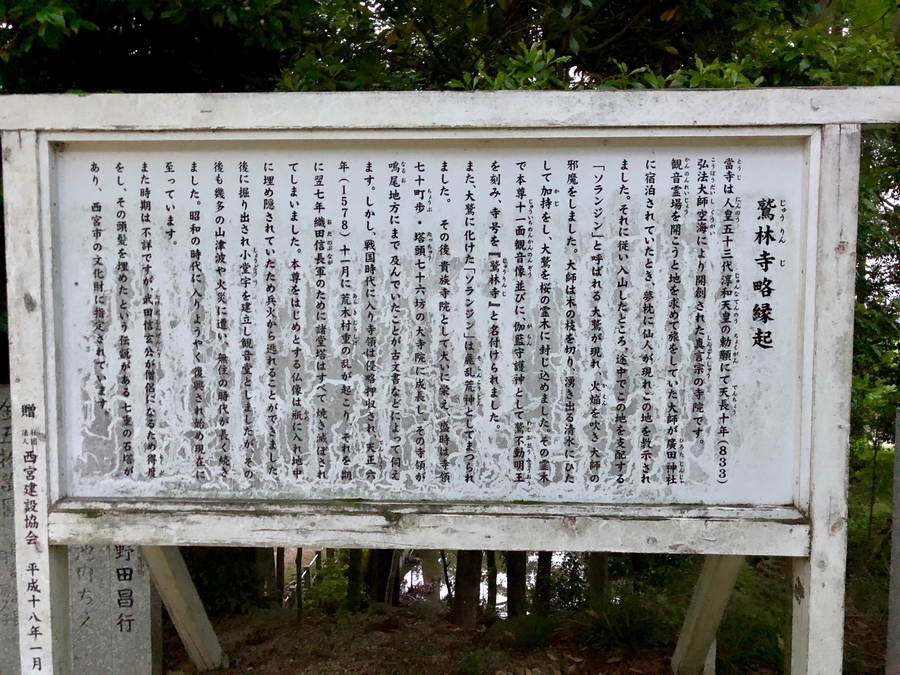 鷲林寺略縁起
當寺は人皇五十三代淳和天皇の勅願にて天長十年（833）
弘法大師空海により開創された真言宗の寺院です。
観音霊場を開こうと地を求めて旅をしていた大師が廣田神社
に宿泊されていたとき、夢枕に仙人が現れこの地を教示され
ました。それに従い入山したところ、途中でこの地を支配する
「ソランジン」と呼ばれる大鷲が現れ、火焔を吹き大師の
邪魔をしました。大師は木の枝を切り、湧き出る清水にひた
して加持をし、大鷲を桜の霊木に封じ込めました。その霊木
で本尊十一面観音像並びに、伽藍守護神として鷲不動明王
を刻み、寺号を『鷲林寺』と名付けられました。
また、大鷲に化けた「ソランジン」は麁乱荒神としてまつられ
ました。その後、貴族寺院として大いに栄え、盛時は寺領
七十町歩・塔頭七十六坊の大寺院に成長し、その寺領が
鳴尾地方にまで及んでいたことが古文書などによって伺え
ます。しかし、戦国時代に入り寺領は侵略押収され、天正六
年（1578）十一月に荒木村重の乱が起こり、それを期
に翌七年織田信長軍のために諸堂塔はすべて焼き滅ぼされ
てしまいました。本尊をはじめとする仏像は瓶に入れ地中
に埋め隠されていたため兵火から逃れることができました。
後に掘り出され小堂宇を建立し観音堂としましたが、その
後も幾多の山津波や火災に遭い、無住の時代が長く続き
ました。昭和の時代に入りようやく復興され始め現在に
至っています。
また時期は不詳ですが、武田信玄公が僧侶になるため得度
をし、その頭髪を埋めたという伝説がある七重の石塔が
あり、西宮市の文化財に指定されています。
贈 社団法人 西宮建設協会 平成十八年一月
野田昌行